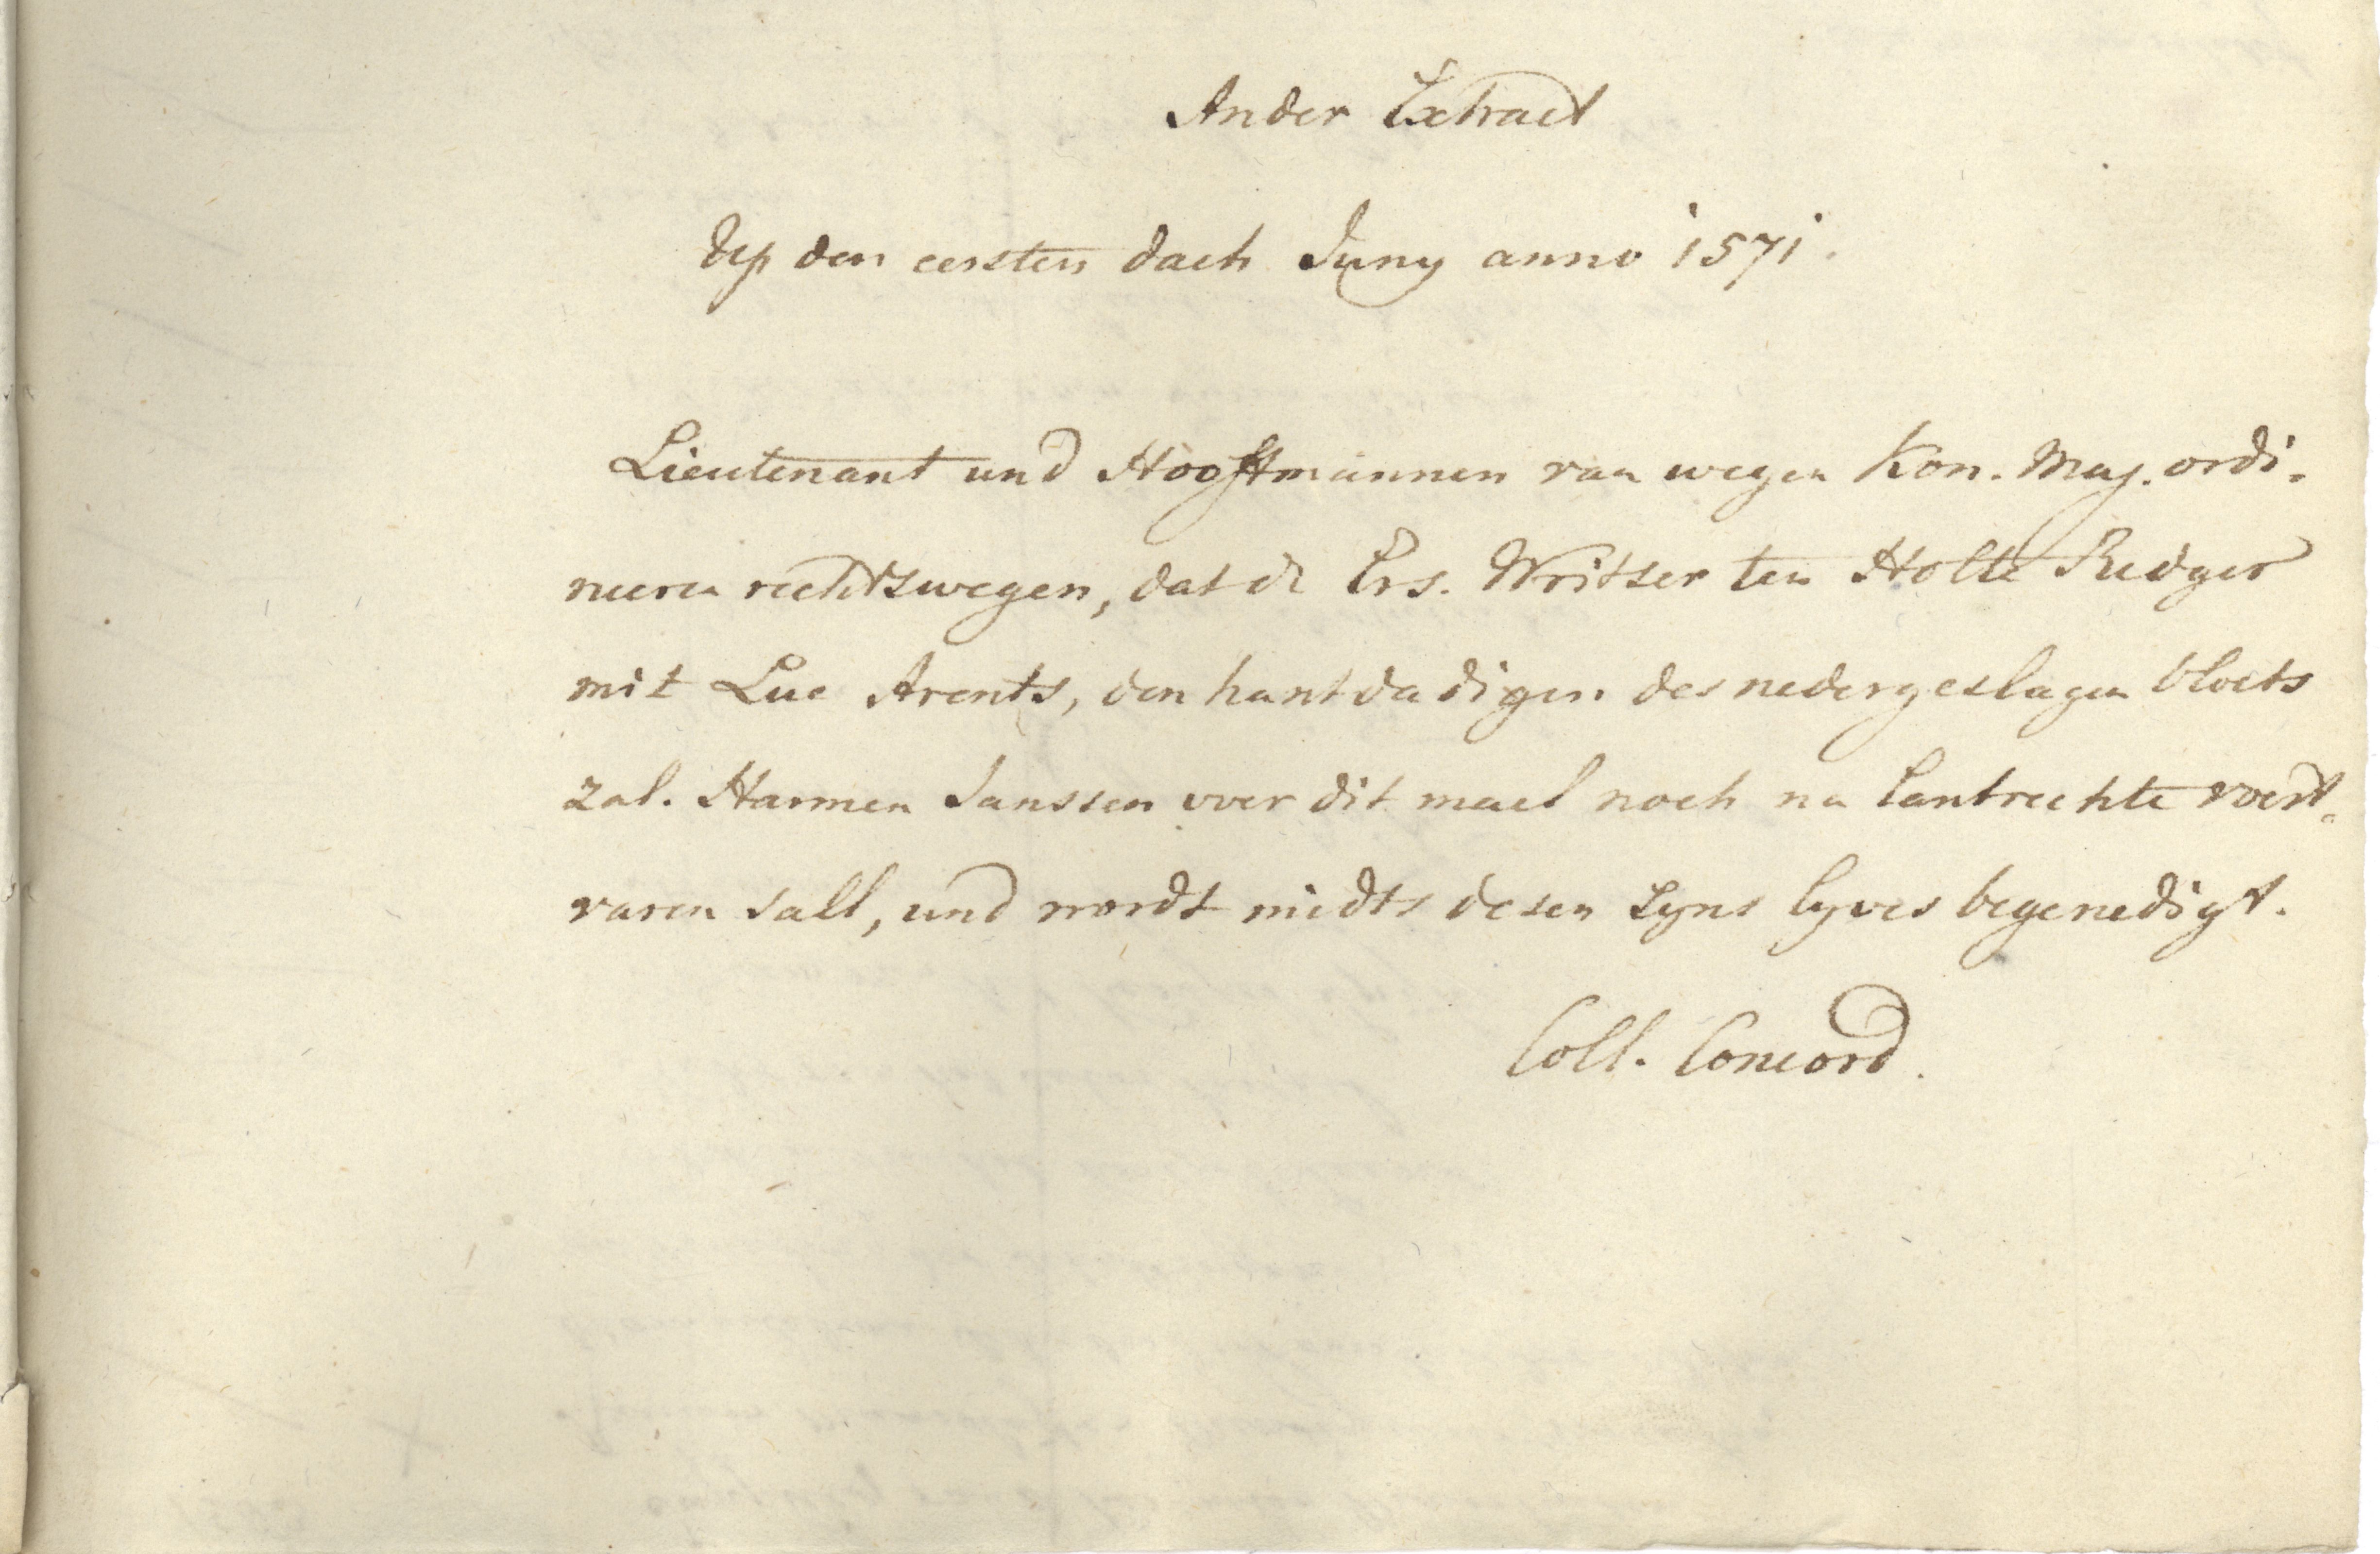 Ander Extract
Up den eersten dach Juny anno 1571.
Lieutenant und Hooftmannen van wegen Kon. Maj. ordi-
neeren rechtswegen, dat de Ers. Writser ten Holte Redger
mit Luc Arents, den hantdadigen des nedergeslagen bloets
zal. Harmen Janssen over dit mael noch na Lantrechte voert-
varen sall, und wordt midts desen syns lyves begenedigt.
Coll. Concord.